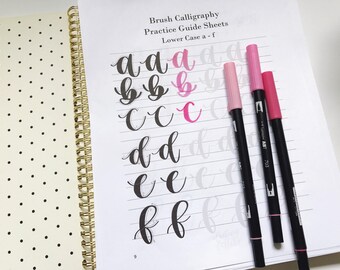 Brush Calligraphy
Practice Guide Sheets
Lower Case a - f
a a a a a
b b b b b
c c c c c
d d d d
e e e e
f f f f